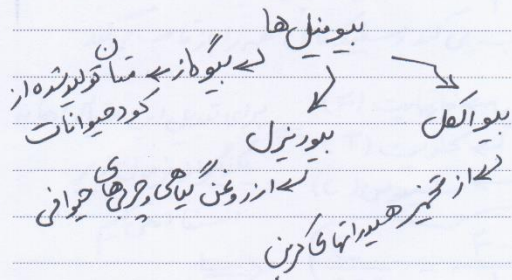 بیوفیول ها
بیوگاز ← متان تولید شده از
کود حیوانات
بیودیزل
از روغن گیاهی و چربی های حیوانی
بیو الکل
از تخمیر هیدراتهای کربن